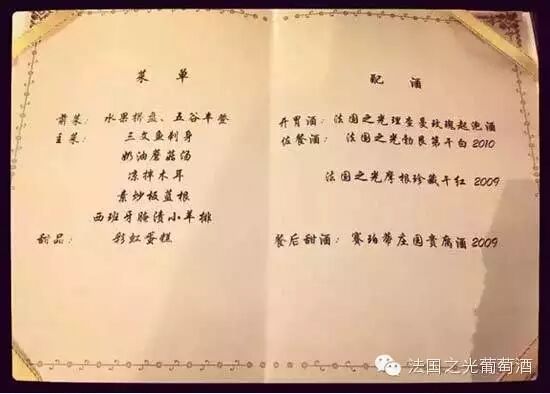 菜 单
前菜： 水果拼盘、五谷丰登
主菜： 三文鱼刺身
奶油蘑菇汤
凉拌木耳
素炒板蓝根
西班牙腌渍小羊排
甜品： 彩虹蛋糕
配 酒
开胃酒：法国之光理查曼玫瑰起泡酒
佐餐酒：法国之光勃艮第干白2010
法国之光摩根珍藏干红 2009
餐后甜酒：赛珀蒂庄园贵腐酒2009
法国之光葡萄酒